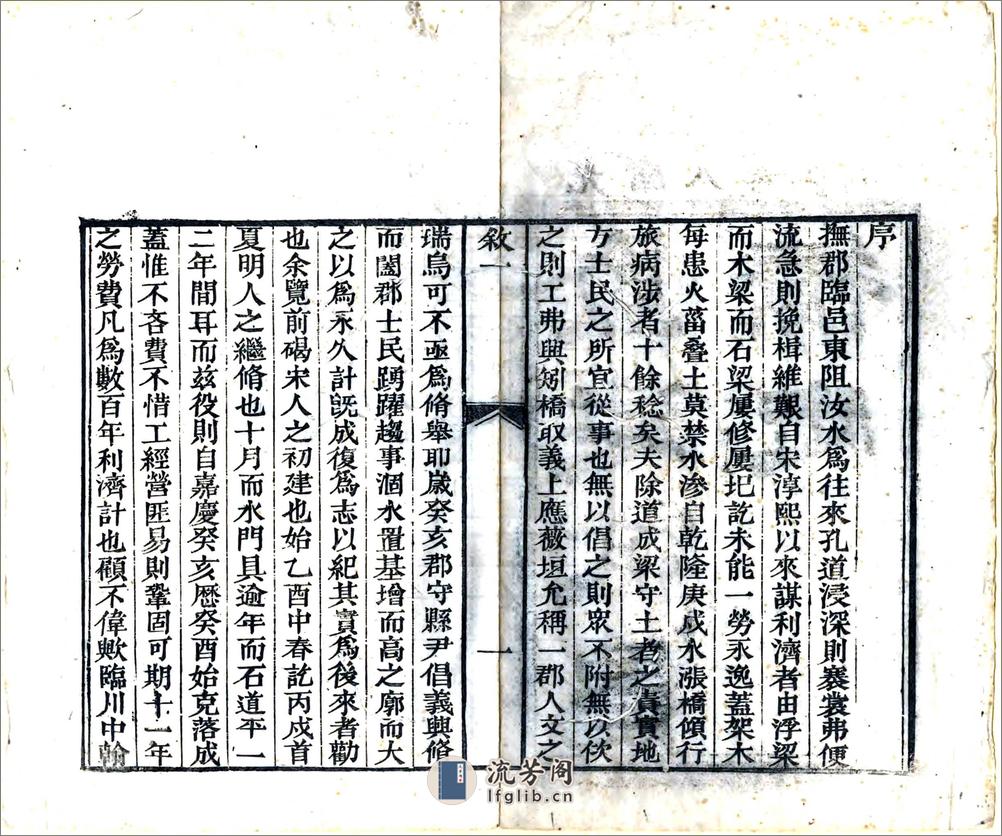 序
撫郡臨邑東阻汝水爲往來孔道浸深則褰裳弗便
流急則挽楫維艱自宋淳熙以來謀利濟者由浮梁
而木梁而石梁屢修屢圮訖未能一勞永逸蓋架木
每患火菑叠土莫禁水滲自乾隆庚戌水漲橋傾行
旅病涉者十餘稔矣夫除道成梁守土者之責實地
方士民之所宜從事也無以倡之則眾不附無以佽
之則工弗興矧橋取義上應薇垣允稱一郡人文之
敘一
一
瑞烏可不亟爲脩舉耶嵗癸亥郡守縣尹倡義興脩
而闔郡士民踴躍趨事涸水置基增而高之廓而大
之以爲永久計旣成復爲志以紀其實爲後來者勸
也余覽前碣宋人之初建也始乙酉中春訖丙戌首
夏明人之繼脩也十月而水門具逾年而石道平一
二年間耳而兹役則自嘉慶癸亥歷癸酉始克落成
蓋惟不吝費不惜工經營匪易則鞏固可期十一年
之勞費凡爲數百年利濟計也顧不偉歟臨川中翰
流芳阁
lfglib.cn